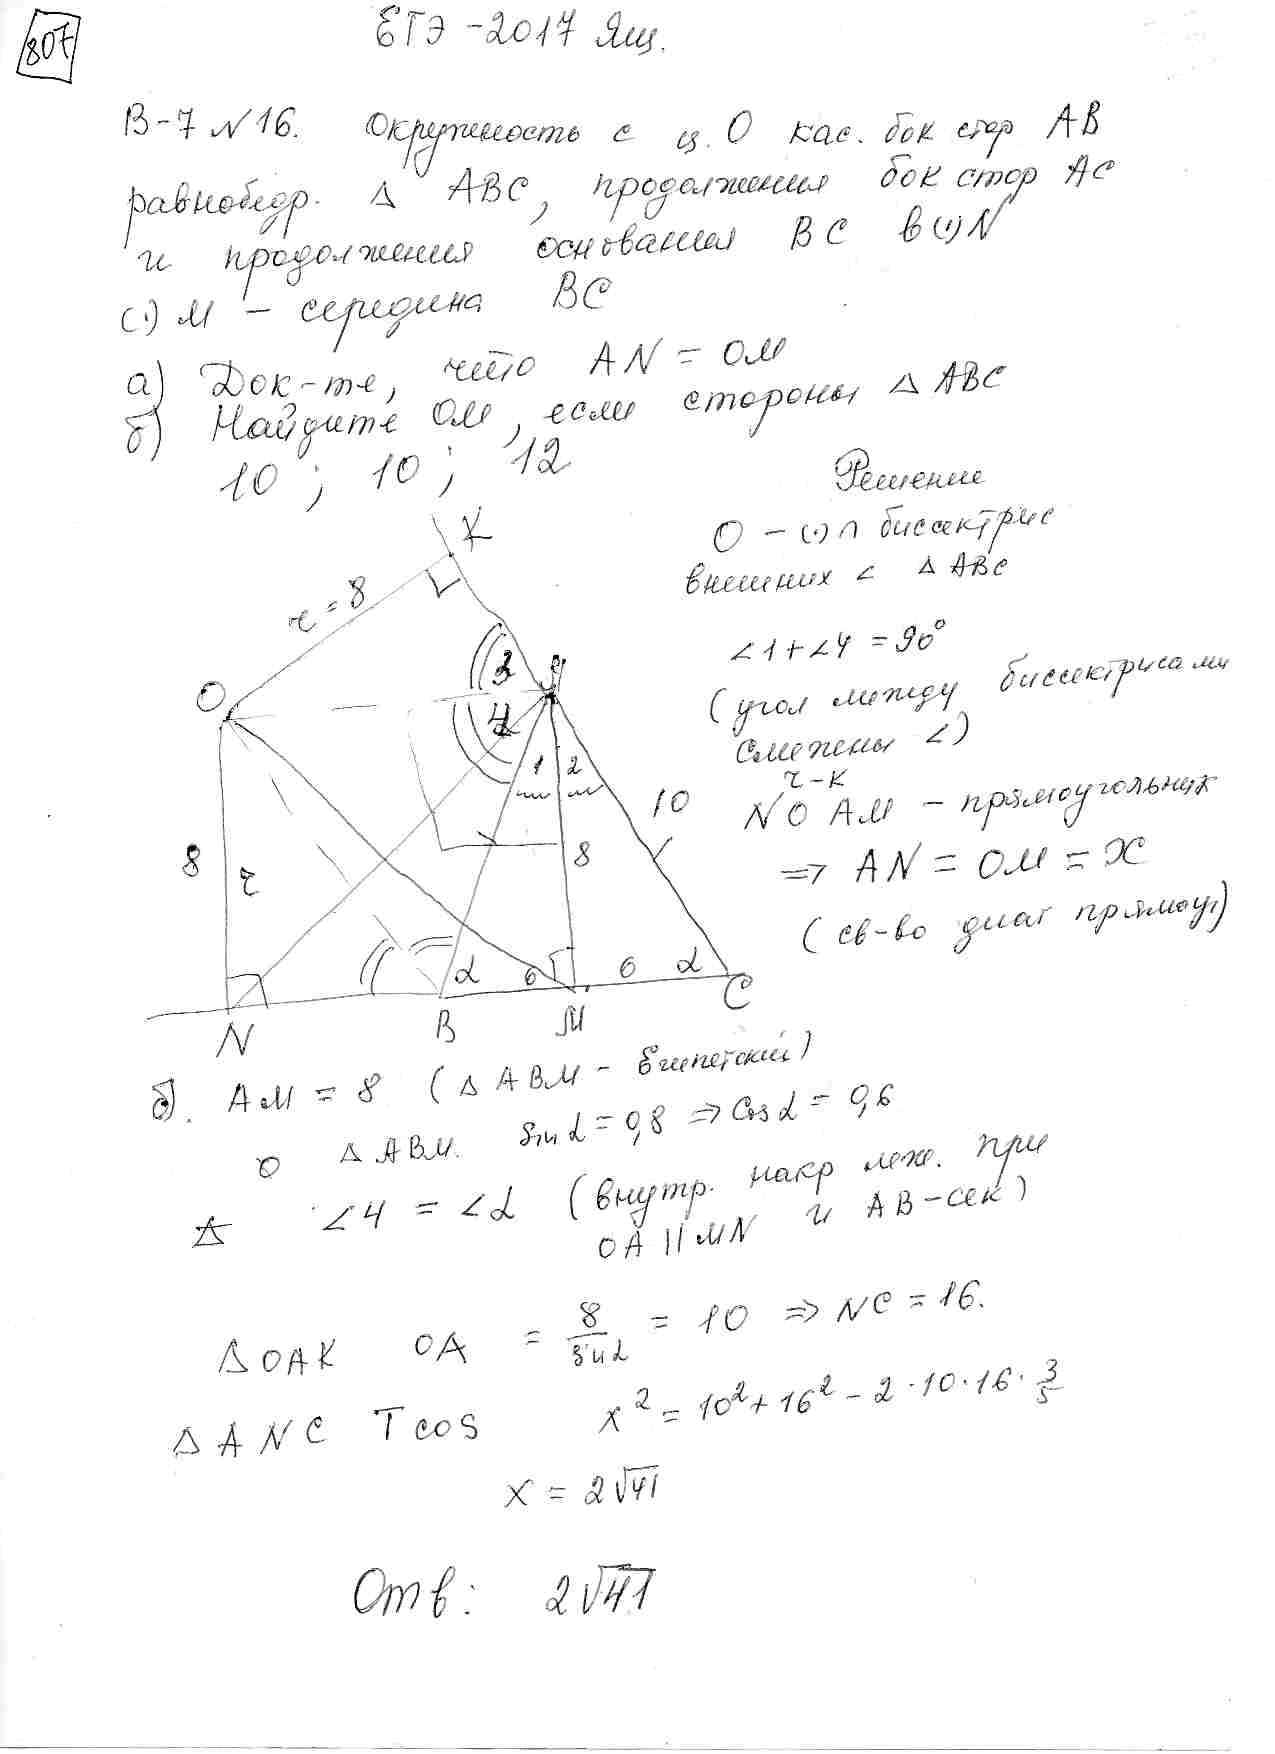 807
ЕГЭ-2017 Ящ.
В-7 №16. Окружность с ц. О кас. бок стор АВ
равнобедр. Δ АВС, продолжения бок стор АС
и продолжения основания ВС в (·) N
(·) М – середина ВС
а) Док-те, что AN = OM
б) Найдите ОМ, если стороны Δ АВС
10; 10; 12
Решение
О – (·) ∩ биссектрис
внешних ∠ Δ АВС
∠1+∠4 = 90°
(угол между биссектрисами
смежены ∠)
ч-к
NOAM – прямоугольник
=> AN = OM = x
(св-во диаг прямоуг)
K
r = 8
3
O
A
4
1
2
10
8
r
8
α
6
6
α
C
N
B
M
б). AM = 8 (Δ ABM – Египетский)
Δ ABM. sin α = 0,8 => cos α = 0,6
∠4 = ∠α (внутр. накр леж. при
OA || MN и AB-сек)
Δ OAK OA = 8/sin α = 10 => NC = 16.
Δ ANC T cos x² = 10² + 16² – 2·10·16·3/5
x = 2√41
Отв: 2√41